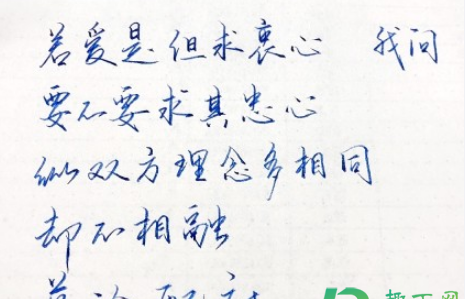 若爱是但求衷心 我问
要不要求其忠心
纵双方理念多相同
却不相融